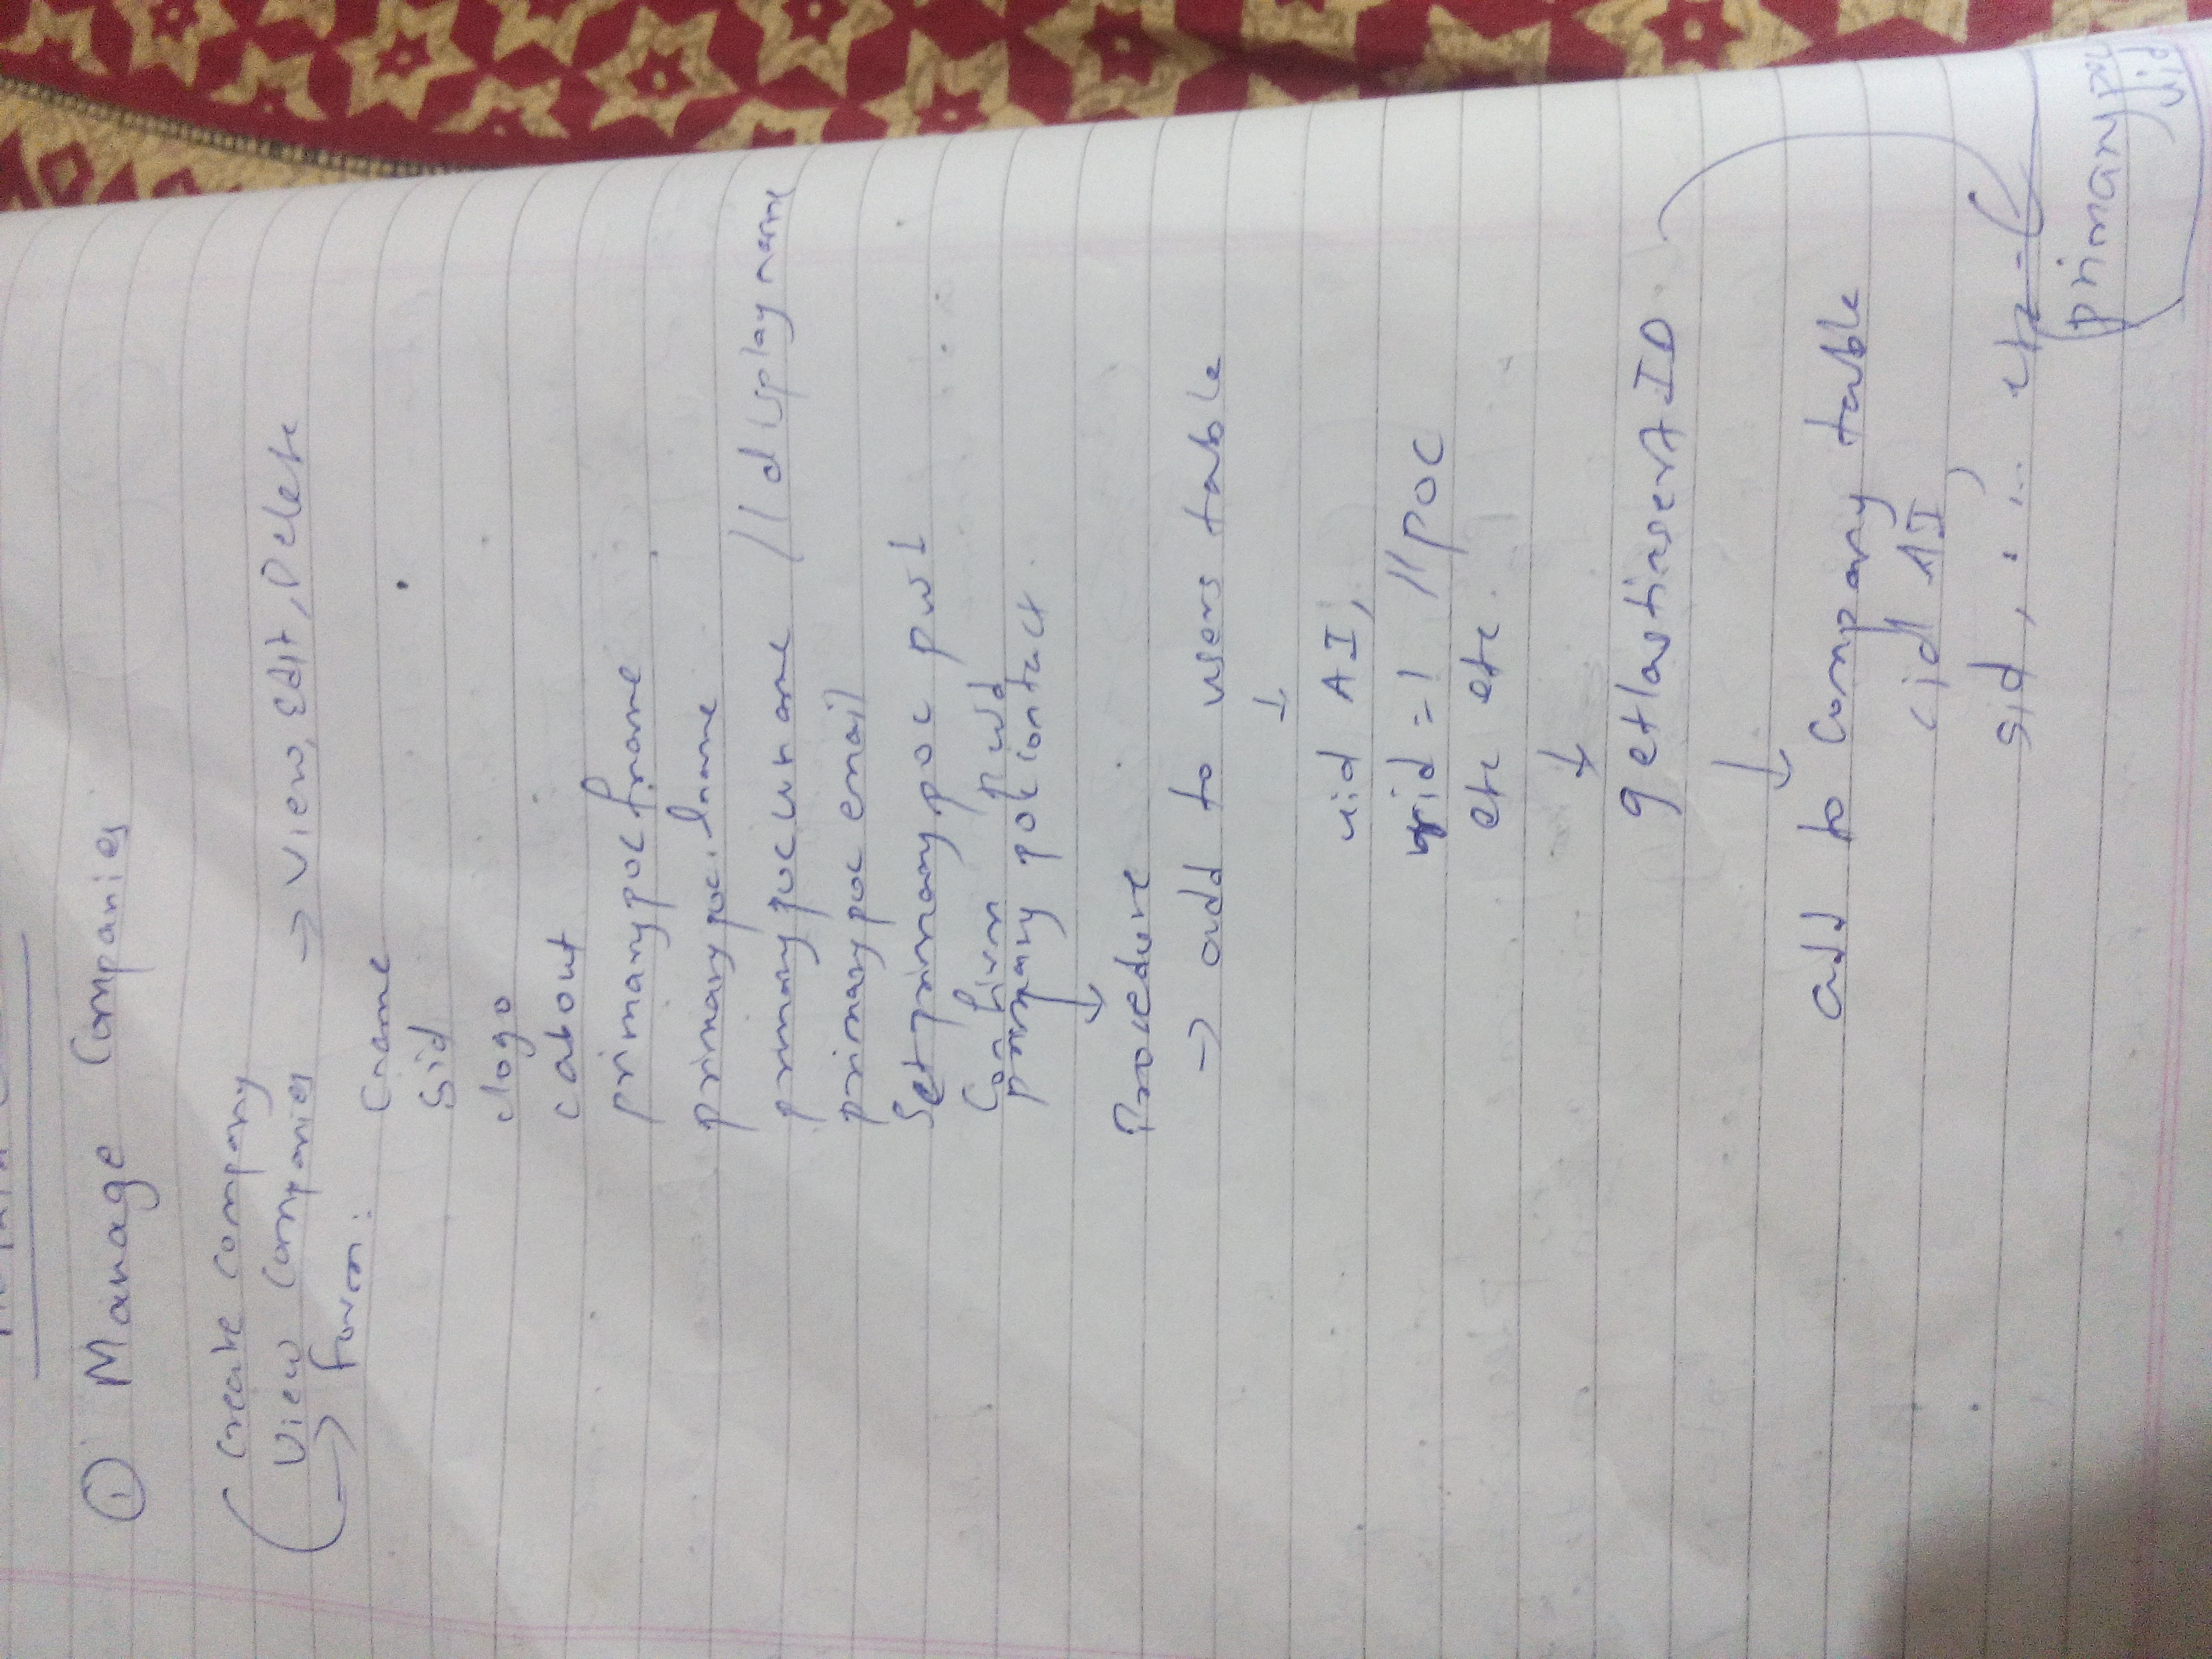 ① Manage Companies
Create Company
View Companies → View, Edit, Delete
→ Form:
Cname
Sid
clogo
cabout
primarypocfname
primarypoclname
primarypocuname // displayname
primarypocemail
Setprimarypoc pwd
Confirm pwd
primary poc contact
↓
Procedure
→ add to users table
↓
uid AI,
rid = 1 // POC
etc etc.
↓
getlastinsertAID
↓
add to Company table
cid AI
sid, . . . . etc
primarypoc
uid